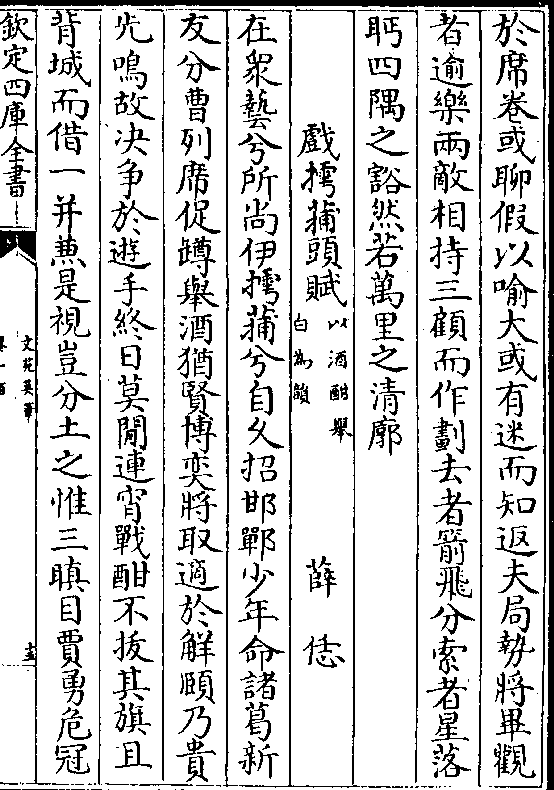 於席卷或聊假以喻大或有迷而知返夫局勢將畢觀
者逾樂兩敵相持三顧而作劃去者箭飛分索者星落
眄四隅之豁然若萬里之清廓
戲摴蒱頭賦 以酒酣舉白為韻 薛恁
在衆藝兮所尚伊摴蒱兮自久招邯鄲少年命諸葛新
友分曹列席促罇舉酒猶賢博奕將取適於解頤乃貴
先鳴故决爭於遊手終日莫閒連宵戰酣不拔其旗且
背城而借一并㷱是視豈分土之惟三瞋目賈勇危冠
欽定四庫全書
文苑英華